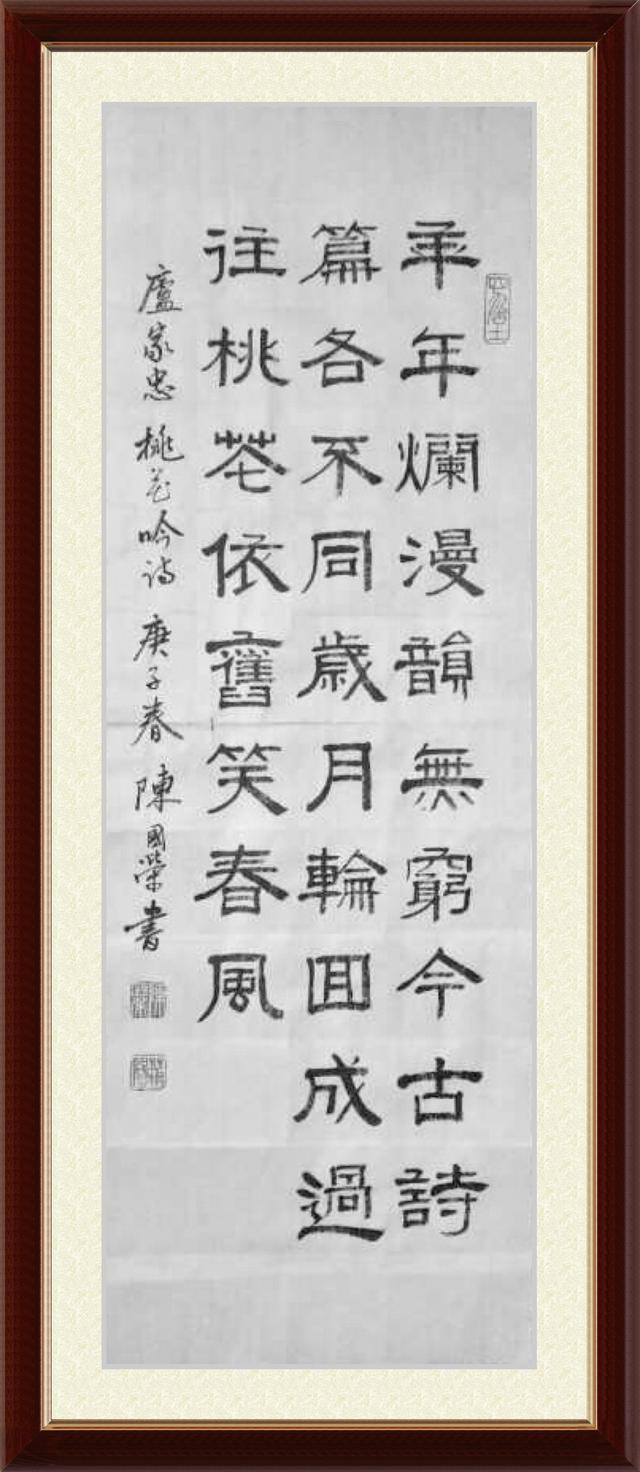 年年爛漫韻無窮今古詩
篇各不同歲月輪回成過
往桃花依舊笑春風
廬家忠 桃花吟詩 庚子春 陳國榮書